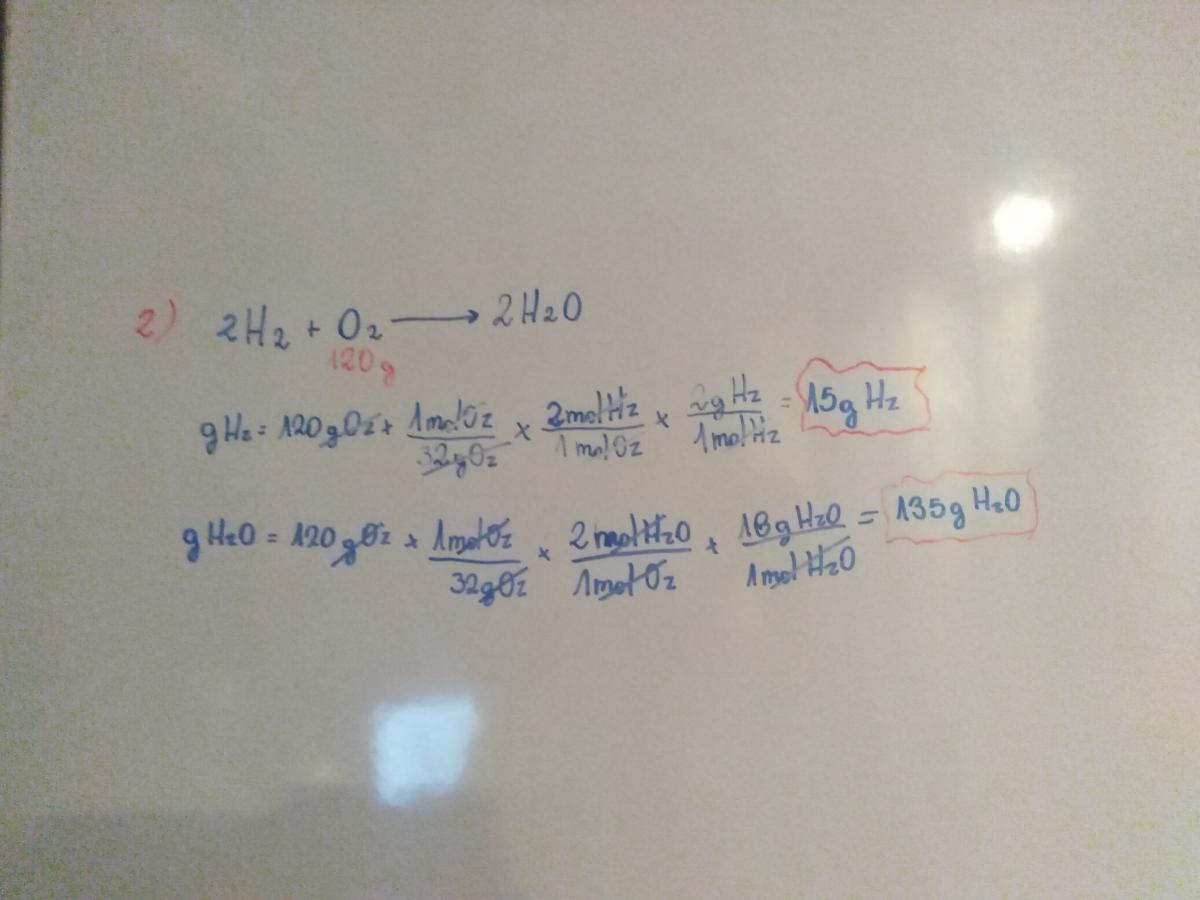 2) 2H2 + O2 ⟶ 2H2O
120g
gH2 = 120gO2 × 1molO2/32gO2 × 2molH2/1molO2 × 2gH2/1molH2 = 15gH2
gH2O = 120gO2 × 1molO2/32gO2 × 2molH2O/1molO2 × 18gH2O/1molH2O = 135gH2O